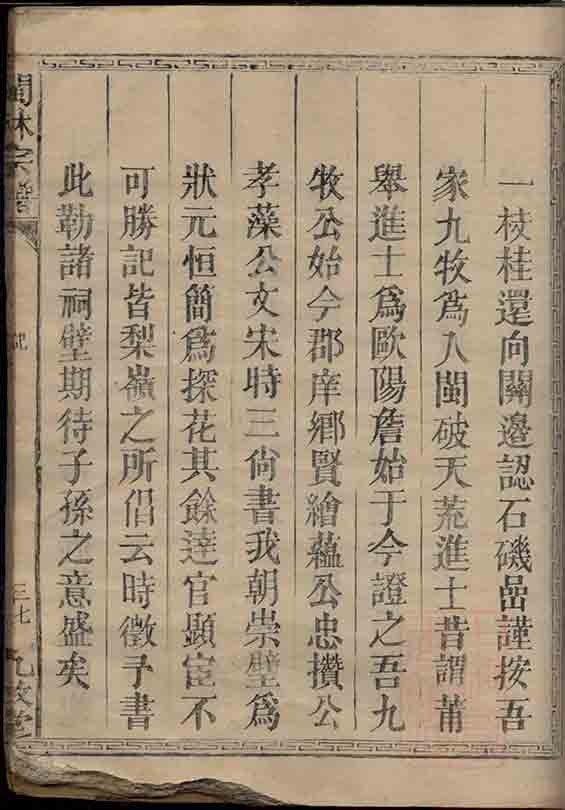 一枝桂還向關邊認石磯嵒謹按吾
家九牧爲入閩破天荒進士昔謂莆
舉進士爲歐陽詹始于今證之吾九
牧公始今郡庠鄉賢繪蘊公忠攢公
孝藻公文宋時三尙書我朝崇璧爲
狀元恒簡爲探花其餘達官顯宦不
可勝記皆梨嶺之所倡云時徵予書
此勒諸祠壁期待子孫之意盛矣
閩林宗譜
記
三七
九牧堂